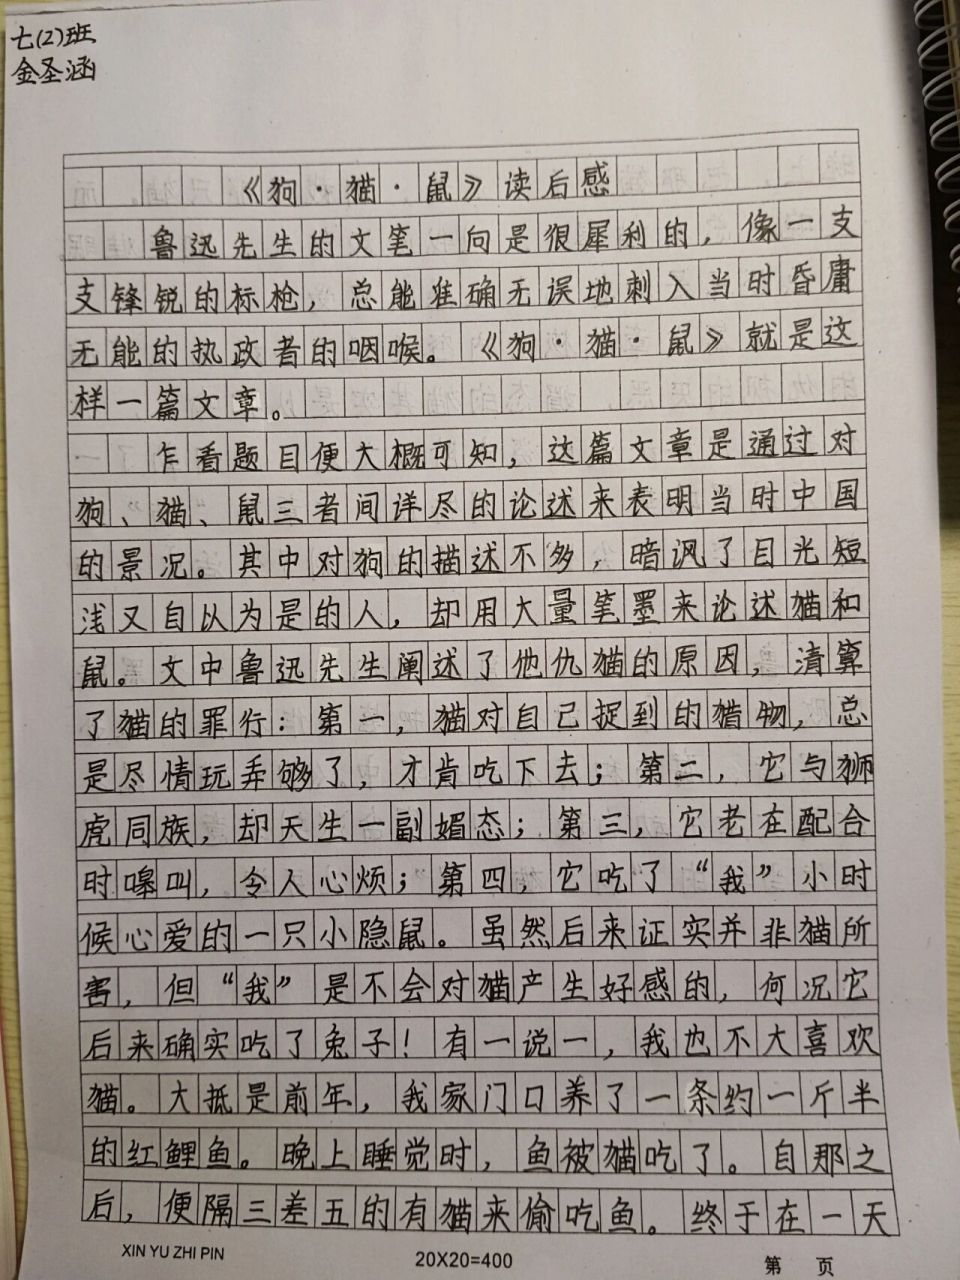 七(2)班
金圣涵
《狗·猫·鼠》读后感
鲁迅先生的文笔一向是很犀利的，像一支
支锋锐的标枪，总能准确无误地刺入当时昏庸
无能的执政者的咽喉。《狗·猫·鼠》就是这
样一篇文章。
乍看题目便大概可知，这篇文章是通过对
狗、猫、鼠三者间详尽的论述来表明当时中国
的景况。其中对狗的描述不多，暗讽了目光短
浅又自以为是的人，却用大量笔墨来论述猫和
鼠。文中鲁迅先生阐述了他仇猫的原因，清算
了猫的罪行：第一，猫对自己捉到的猎物，总
是尽情玩弄够了，才肯吃下去；第二，它与狮
虎同族，却天生一副媚态；第三，它老在配合
时嗥叫，令人心烦；第四，它吃了“我”小时
候心爱的一只小隐鼠。虽然后来证实并非猫所
害，但“我”是不会对猫产生好感的，何况它
后来确实吃了兔子！有一说一，我也不大喜欢
猫。大抵是前年，我家门口养了一条约一斤半
的红鲤鱼。晚上睡觉时，鱼被猫吃了。自那之
后，便隔三差五的有猫来偷吃鱼。终于在一天
XIN YU ZHI PIN
20X20=400
第 页